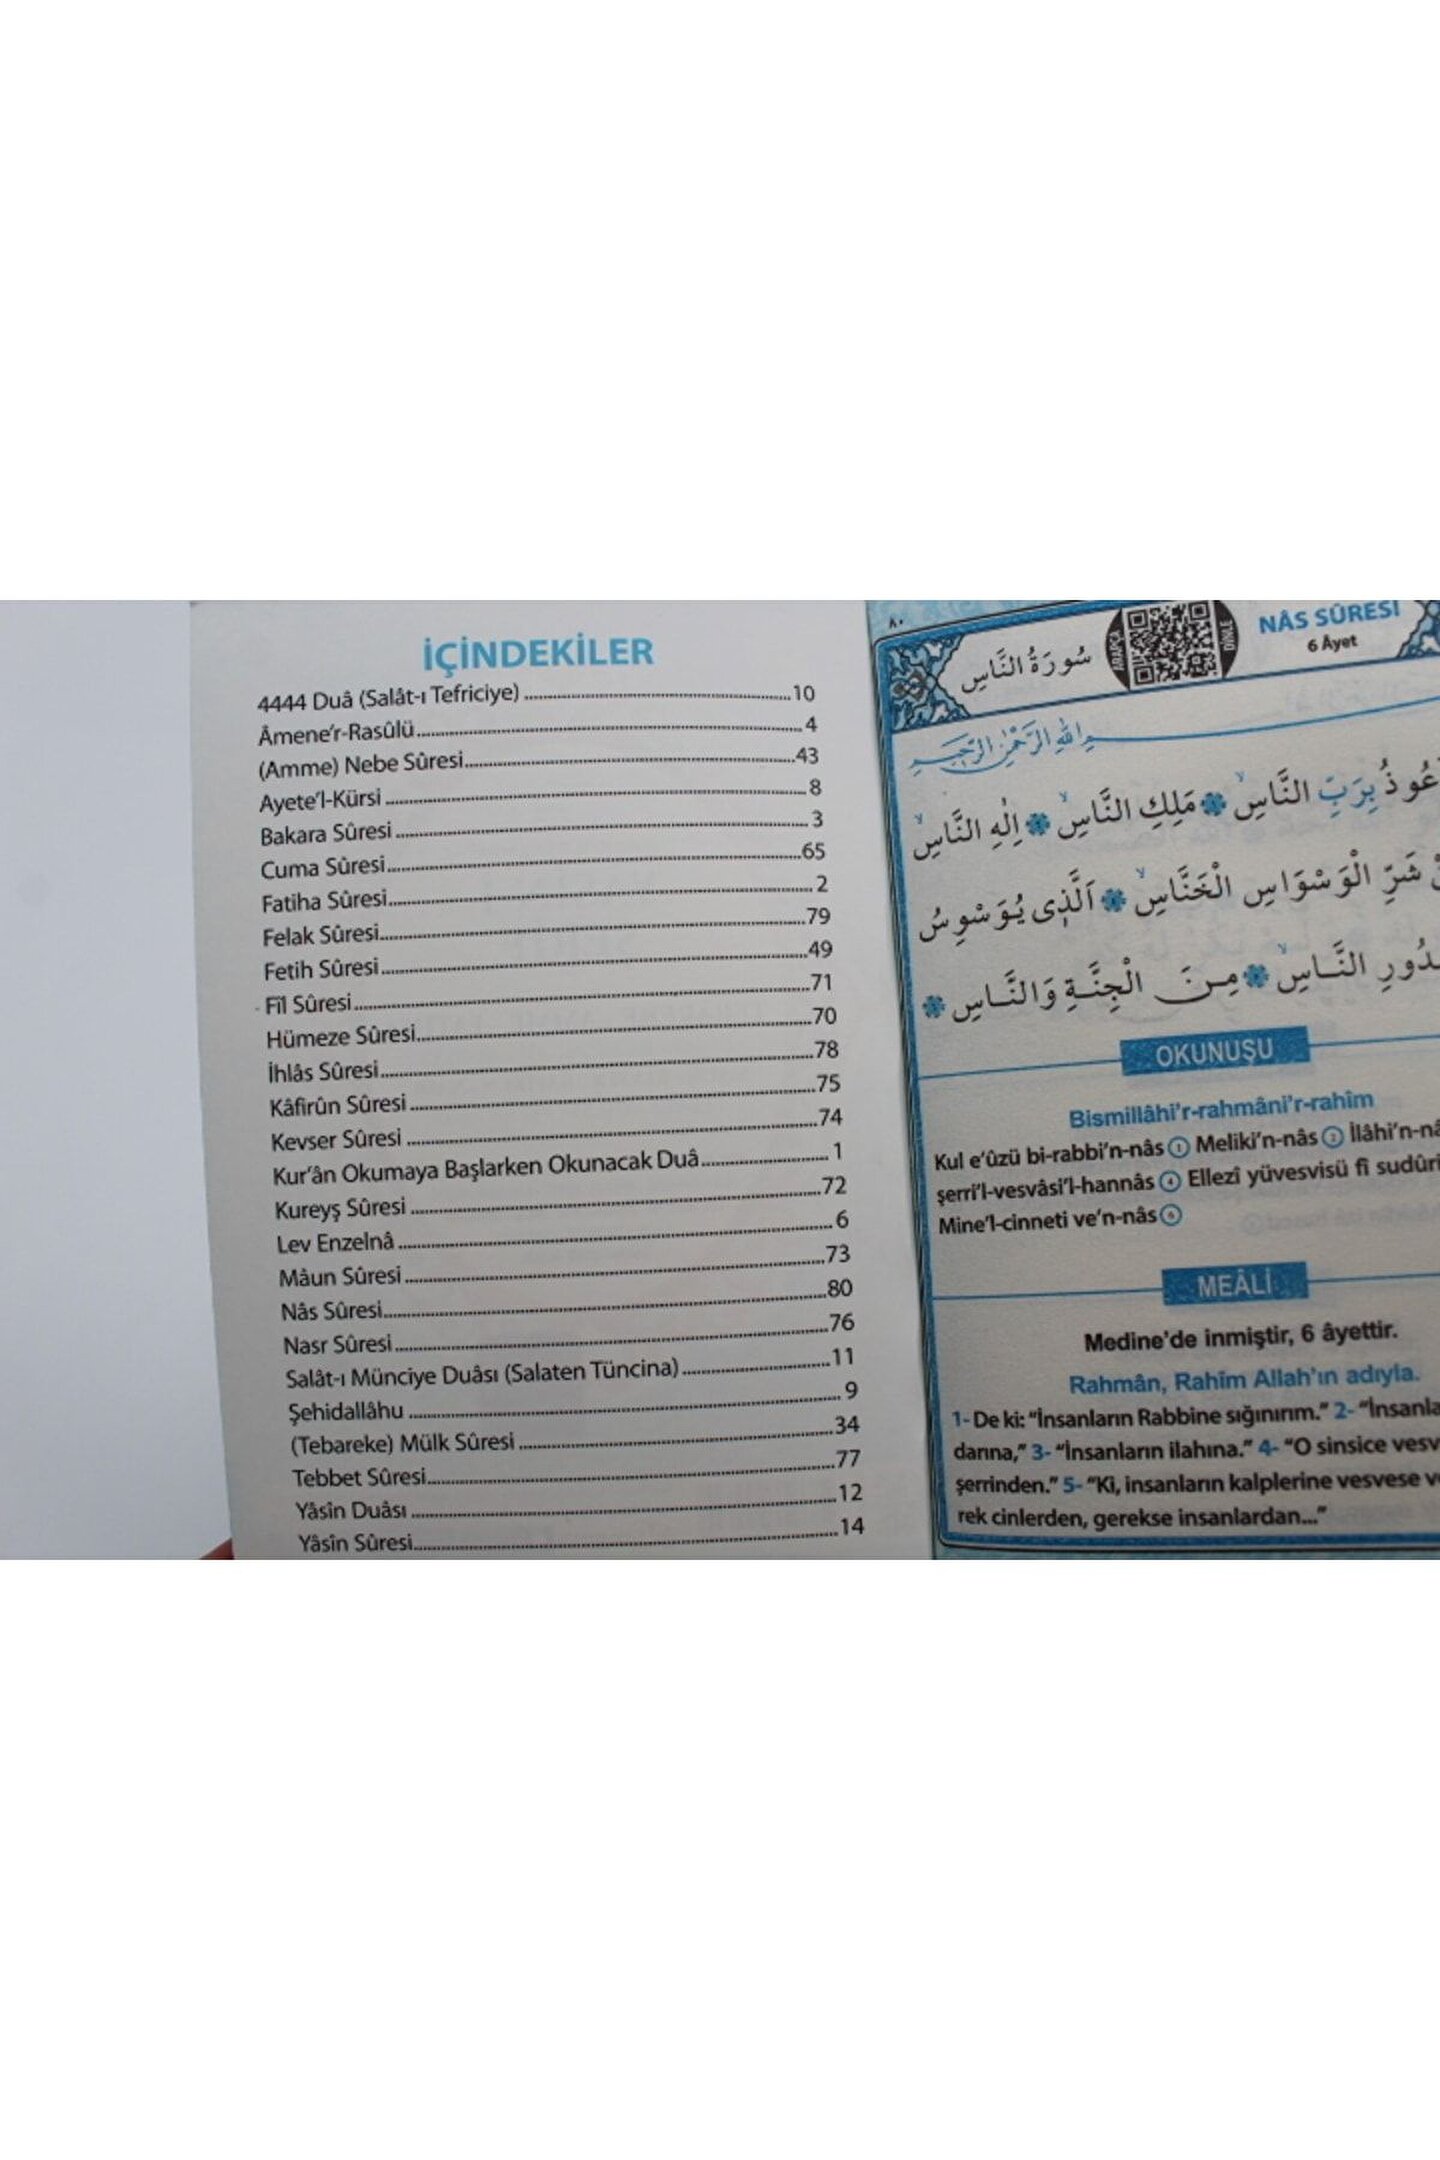 İÇİNDEKİLER
4444 Duâ (Salât-ı Tefriciye) ........ 10
Âmene'r-Rasûlü ........ 4
(Amme) Nebe Sûresi ........ 43
Ayete'l-Kürsi ........ 8
Bakara Sûresi ........ 3
Cuma Sûresi ........ 65
Fatiha Sûresi ........ 2
Felak Sûresi ........ 79
Fetih Sûresi ........ 49
Fîl Sûresi ........ 71
Hümeze Sûresi ........ 70
İhlâs Sûresi ........ 78
Kâfirûn Sûresi ........ 75
Kevser Sûresi ........ 74
Kur'ân Okumaya Başlarken Okunacak Duâ ........ 1
Kureyş Sûresi ........ 72
Lev Enzelnâ ........ 6
Mâun Sûresi ........ 73
Nâs Sûresi ........ 80
Nasr Sûresi ........ 76
Salât-ı Münciye Duâsı (Salaten Tüncina) ........ 11
Şehidallâhu ........ 9
(Tebareke) Mülk Sûresi ........ 34
Tebbet Sûresi ........ 77
Yâsîn Duâsı ........ 12
Yâsîn Sûresi ........ 14
٨٠
سُورَةُ النَّاسِ
ARAPÇA
DİNLE
NÂS SÛRESİ
6 Âyet
اللهِ الرَّحْمٰنِ الرَّحِيمِ
بِرَبِّ النَّاسِۙ ١ مَلِكِ النَّاسِۙ ٢ اِلٰهِ النَّاسِۙ
شَرِّ الْوَسْوَاسِ الْخَنَّاسِۙ ٤ اَلَّذٖى يُوَسْوِسُ
النَّاسِۙ ٥ مِنَ الْجِنَّةِ وَالنَّاسِ ٦
OKUNUŞU
Bismillâhi'r-rahmâni'r-rahîm
Kul e'ûzü bi-rabbi'n-nâs ① Meliki'n-nâs ② İlâhi'n-nâ
şerri'l-vesvâsi'l-hannâs ④ Ellezî yüvesvisü fî sudûri
Mine'l-cinneti ve'n-nâs ⑥
MEÂLİ
Medine'de inmiştir, 6 âyettir.
Rahmân, Rahîm Allah'ın adıyla.
1- De ki: "İnsanların Rabbine sığınırım." 2- "İnsanla
darına," 3- "İnsanların ilahına." 4- "O sinsice vesv
şerrinden." 5- "Ki, insanların kalplerine vesvese v
rek cinlerden, gerekse insanlardan..."